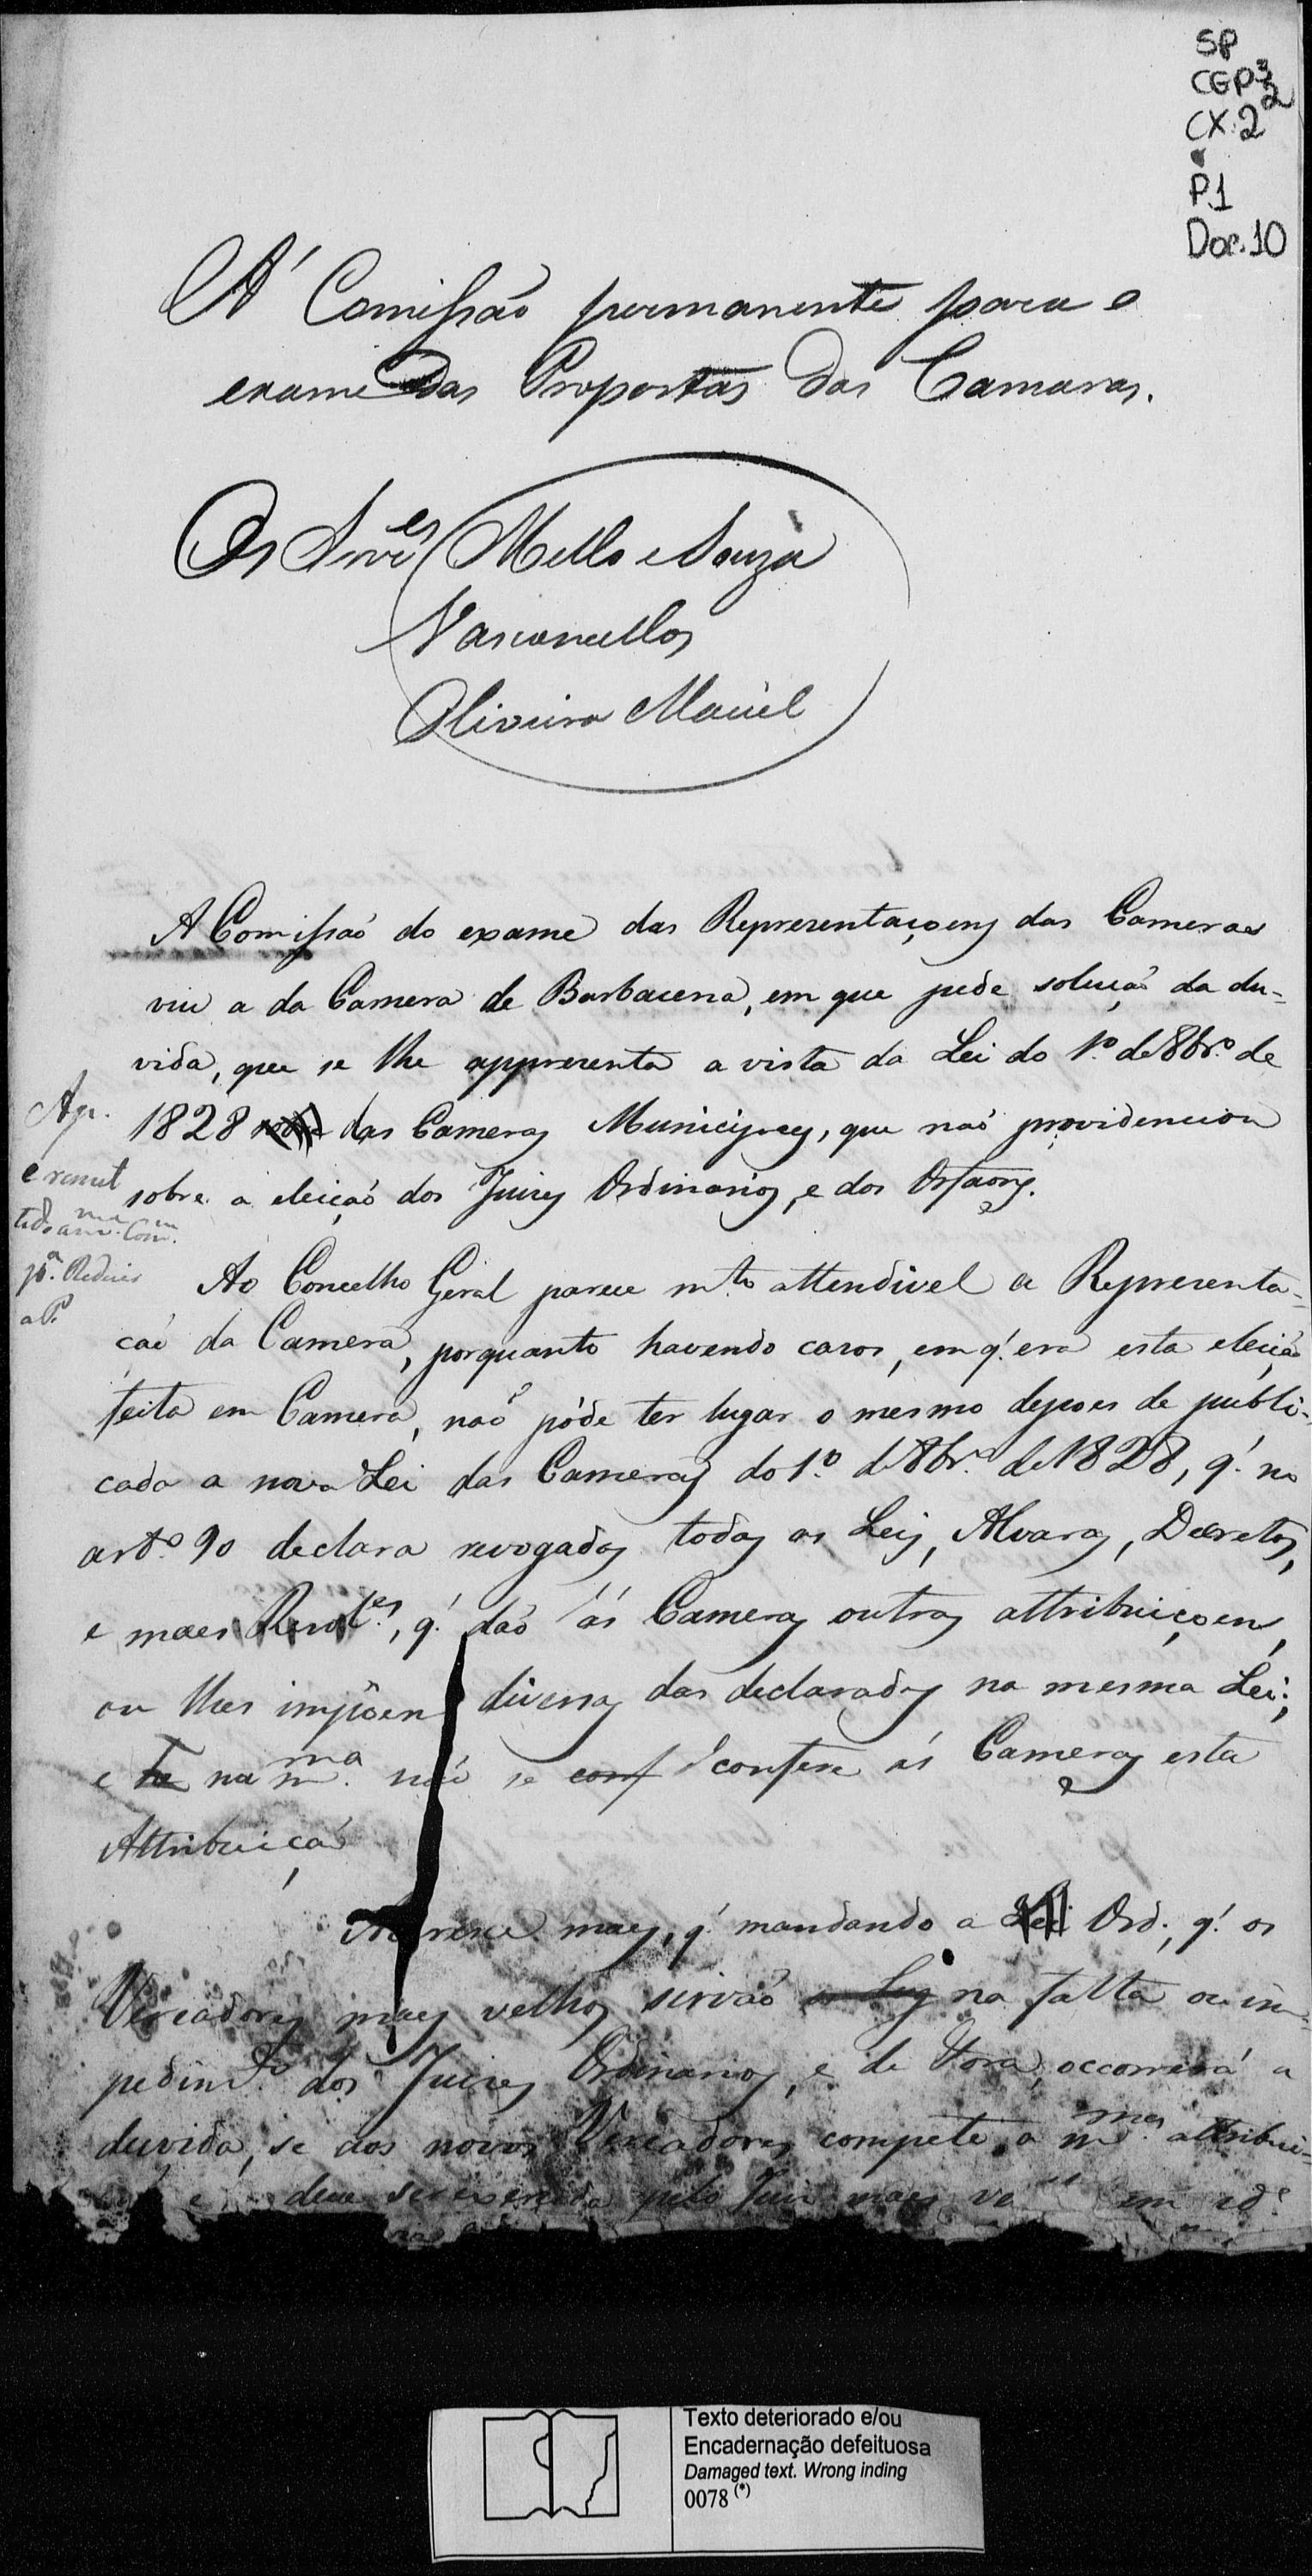 SP
CGP3
2
CX.2
P.1
Doc.10
Á Comissão permanente para o
exame das Propostas das Camaras.
Os Snrẽs Mello e Souza
Vasconcellos
Oliveira Maciel
A Comissaõ do exame das Representaçoens das Cameras
viu a da Camera de Barbacena, em que pede soluçaõ da du-
vida, que se lhe appresenta a vista da Lei do 1º de 8brº de
1828 das Cameras Municipaes, que naõ providenciou
sobre a eleiçaõ dos Juizes Ordinarios, e dos Orfaons.
Ap.
e remet
tido a mª Com.
pª. Reduzir
a P.
Ao Concelho Geral parece mto attendivel a Representa-
çaõ da Camera, porquanto havendo casos, em q' era esta eleiçaõ
feita em Camera, naõ póde ter lugar o mesmo depois de publi-
cada a nova Lei das Cameras do 1º de 8brº de 1828, q' no
artº 90 declara revogados todas as Leis, Alvaras, Decretos,
e maes Resoles, q' daõ ás Cameras outras attribuiçoens,
ou lhes impõem diversas das declaradas na mesma Lei;
e na mma naõ se conf confere ás Cameras esta
Attribuiçaõ
Acresce maes, q' mandando a Lei Ord., q' os
Vereadores maes velhos sirvaõ na falta ou im-
pedimto dos Juizes Ordinarios, e de Fora, occorrerá a
duvida, se aos novos Vereadores compete a mma attribui-
deve ser exercida pelo Juiz maes ve em ide
Texto deteriorado e/ou
Encadernação defeituosa
Damaged text. Wrong inding
0078 (*)